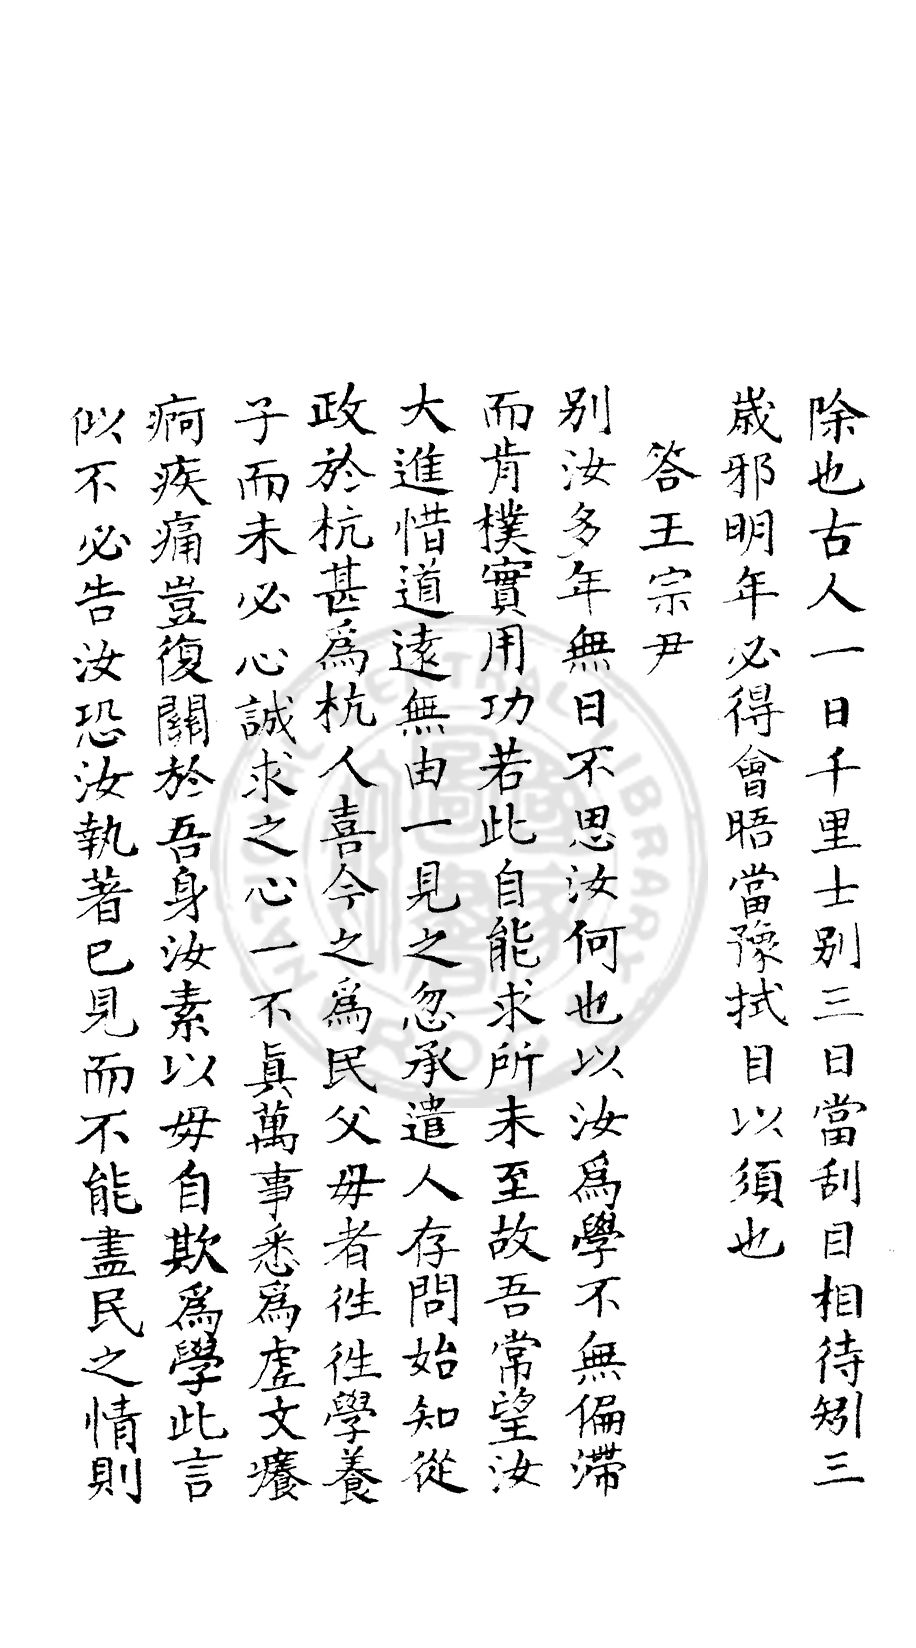 除也古人一日千里士别三日當刮目相待矧三
歲邪明年必得會晤當豫拭目以須也
答王宗尹
别汝多年無日不思汝何也以汝爲學不無偏滯
而肯樸實用功若此自能求所未至故吾常望汝
大進惜道遠無由一見之忽承遣人存問始知從
政於杭甚爲杭人喜今之爲民父毋者徃徃學養
子而未必心誠求之心一不眞萬事悉爲虛文癢
痾疾痛豈復關於吾身汝素以毋自欺爲學此言
似不必告汝恐汝執著已見而不能盡民之情則